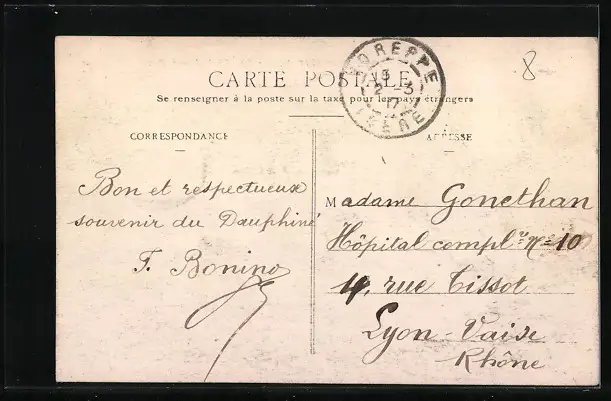 8
VOREPPE
15
2-3
17
ISÈRE
CARTE POSTALE
Se renseigner à la poste sur la taxe pour les pays étrangers
CORRESPONDANCE
Bon et respectueux
souvenir du Dauphiné
F. Bonino
ADRESSE
Madame Gonethan
Hôpital compl.re No 10
4, rue Tissot
Lyon-Vaise
Rhône